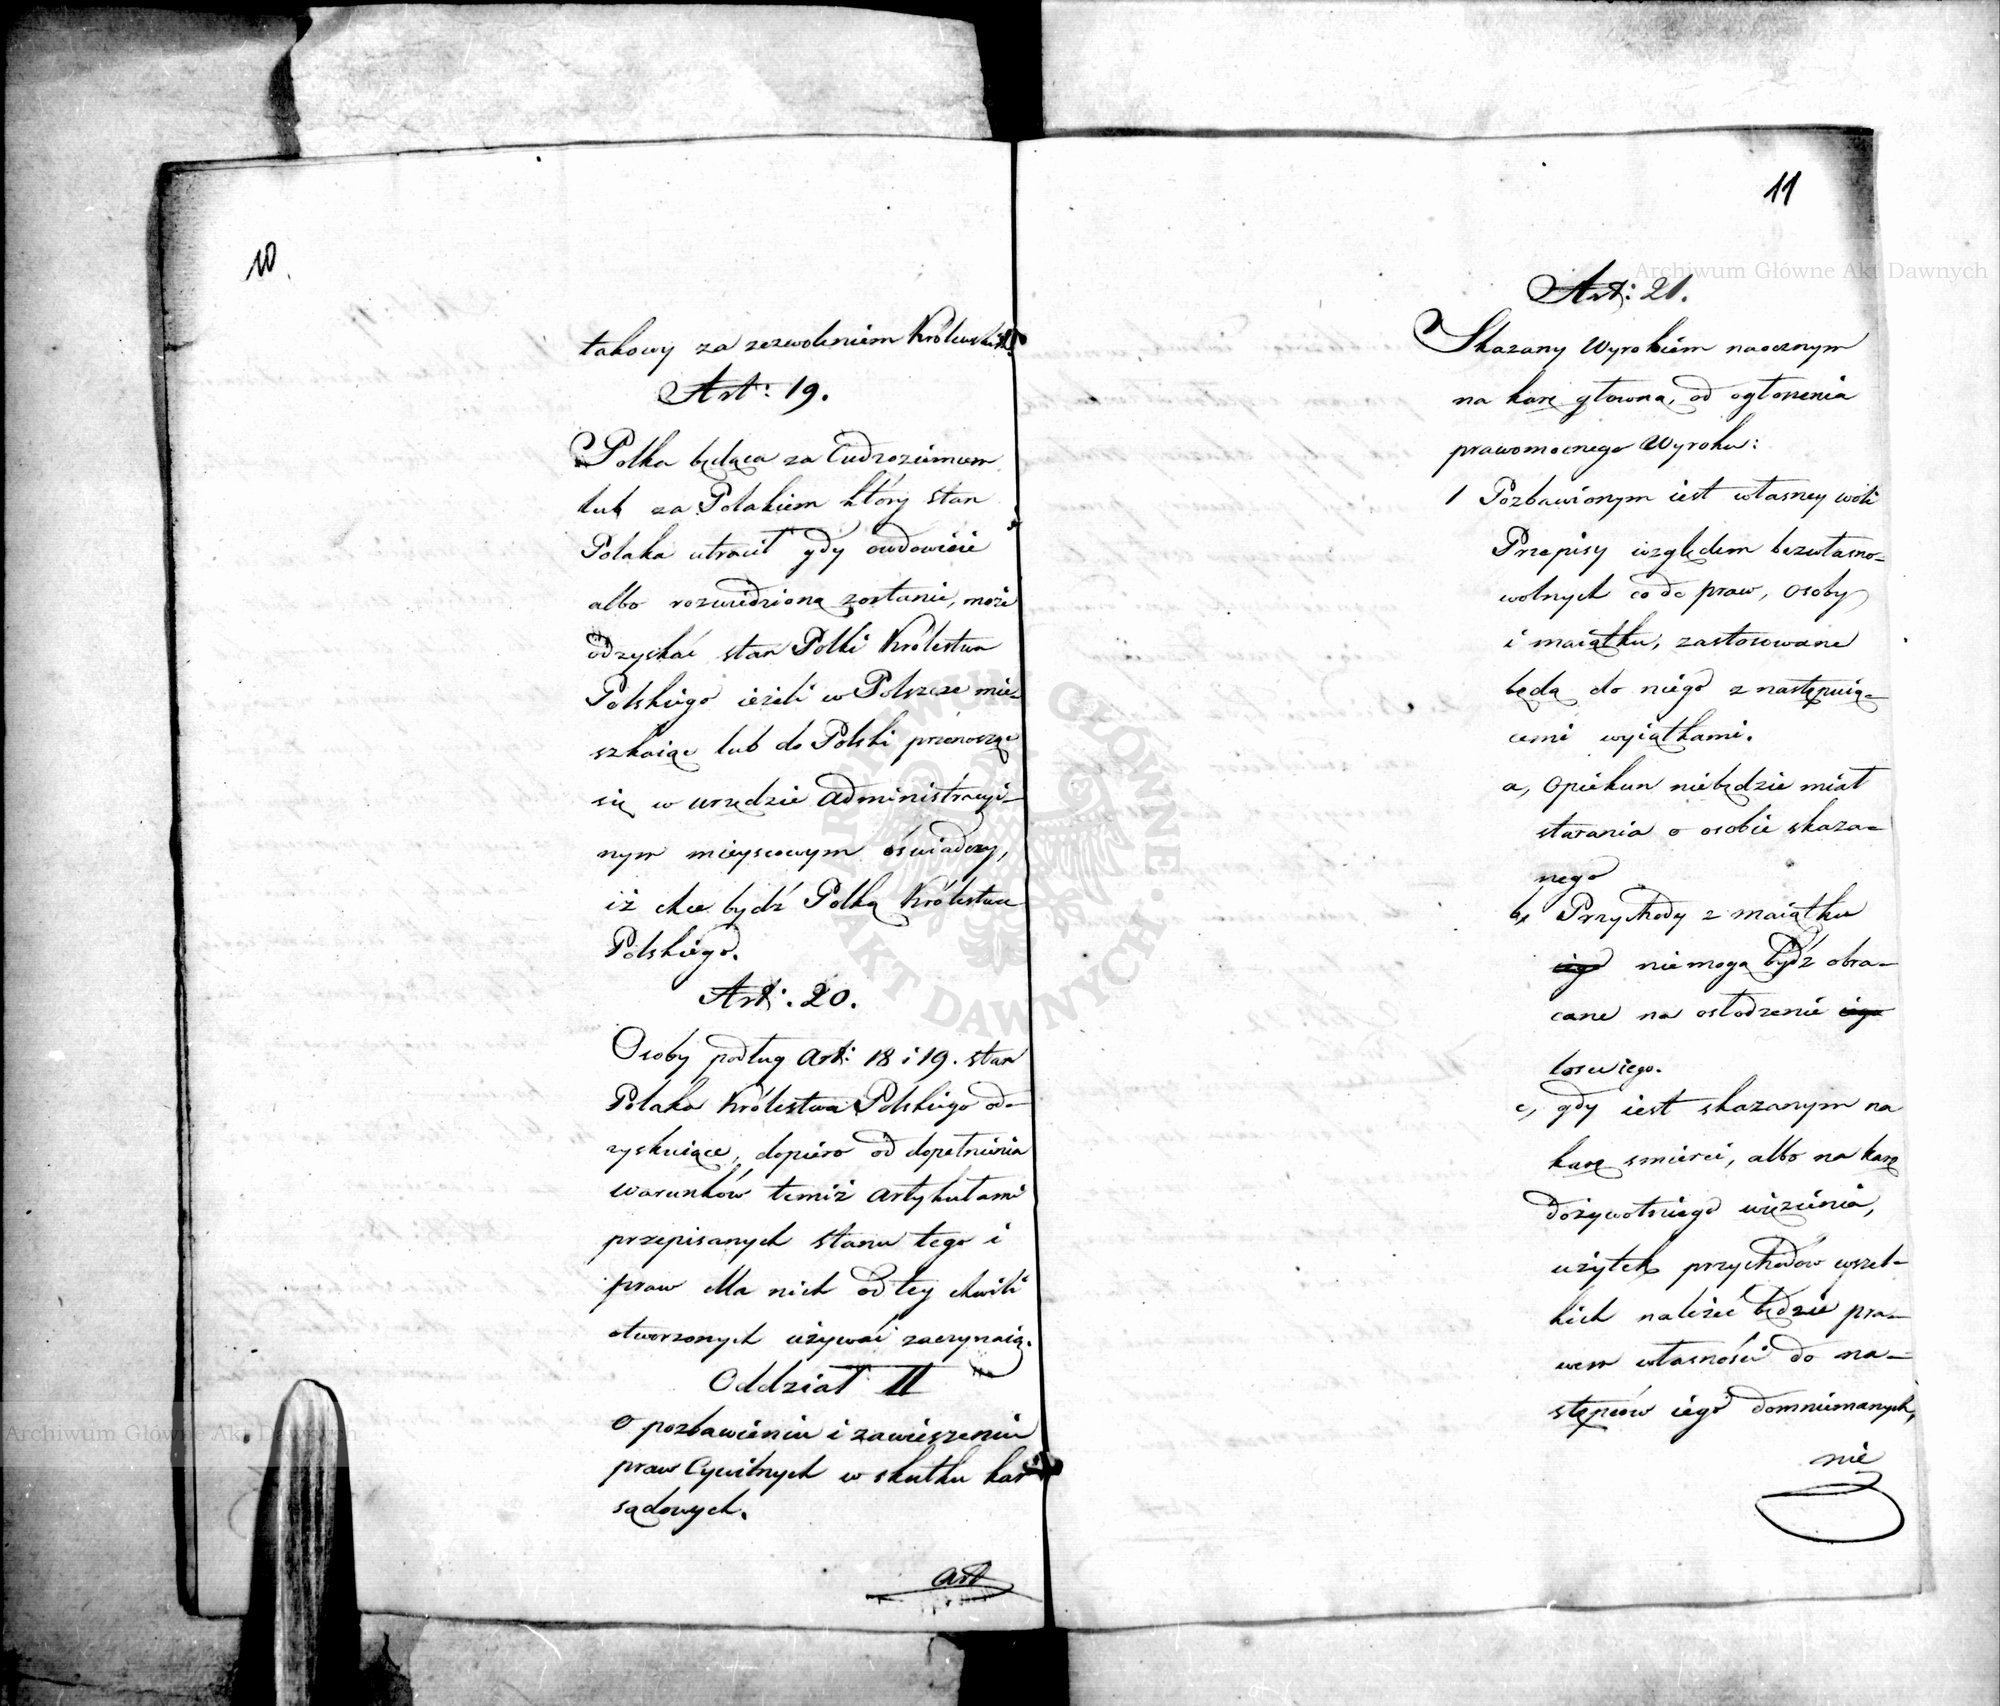 10.
takowy za zezwoleniem Królewskiem.
Art: 19.
Polka będąca za Cudzoziemcem
lub za Polakiem który stan
Polaka utracił gdy owdowieie
albo rozwiedzioną zostanie, może
odzyskać stan Polki Królestwa
Polskiego ieżeli w Polszcze mie-
szkaiąc lub do Polski przenosząc
się w urzędzie administracyi-
nym mieyscowym oświadczy,
iż chce bydź Polką Królestwa
Polskiego.
Art: 20.
Osoby podług Art: 18 i 19. stan
Polaka Królestwa Polskiego od-
zyskuiące, dopiero od dopełnienia
warunków temiż artykułami
przepisanych stanu tego i
praw dla nich od tey chwili
otworzonych używać zaczynaią.
Oddział II
O pozbawieniu i zawieszeniu
praw Cywilnych w skutku kar
sądowych.
Art
11
Art: 21.
Skazany Wyrokiem naocznym
na karę główną, od ogłoszenia
prawomocnego Wyroku:
1 Pozbawionym iest własney woli
Przepisy względem bezwłasno-
wolnych co do praw, osoby
i maiątku, zastosowane
będą do niego z następuią-
cemi wyiątkami.
a, Opiekun niebędzie miał
starania o osobie skaza-
nego
b, Przychody z maiątku
iego niemogą bydź obra-
cane na osłodzenie iego
losu iego.
c, gdy iest skazanym na
karę smierci, albo na karę
dożywotniego więzienia,
użytek przychodów wszel-
kich należeć będzie pra-
wem własności do na-
stępców iego domniemanych,
nie
Archiwum Główne Akt Dawnych
Archiwum Główne Akt Dawnych
ARCHIWUM GŁÓWNE AKT DAWNYCH